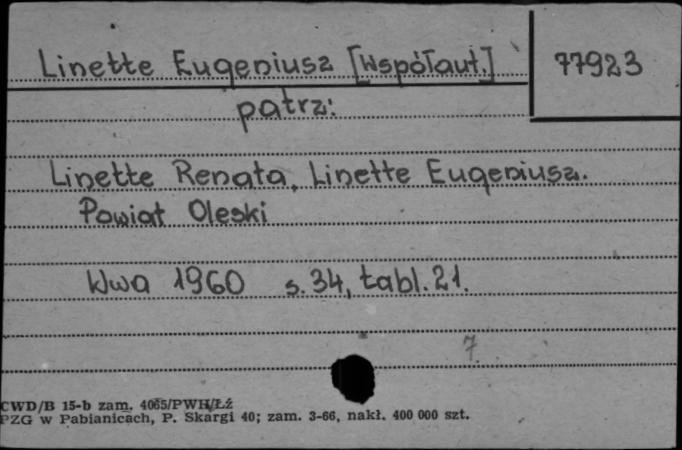 Linette Eugeniusz [Współaut.] 77923
patrz:
Linette Renata, Linette Eugeniusz.
Powiat Oleski
Wwa 1960 s. 34, tabl. 21.
7
CWD/B 15-b zam. 4065/PWH/Łź
PZG w Pabianicach, P. Skargi 40; zam. 3-66, nakł. 400 000 szt.